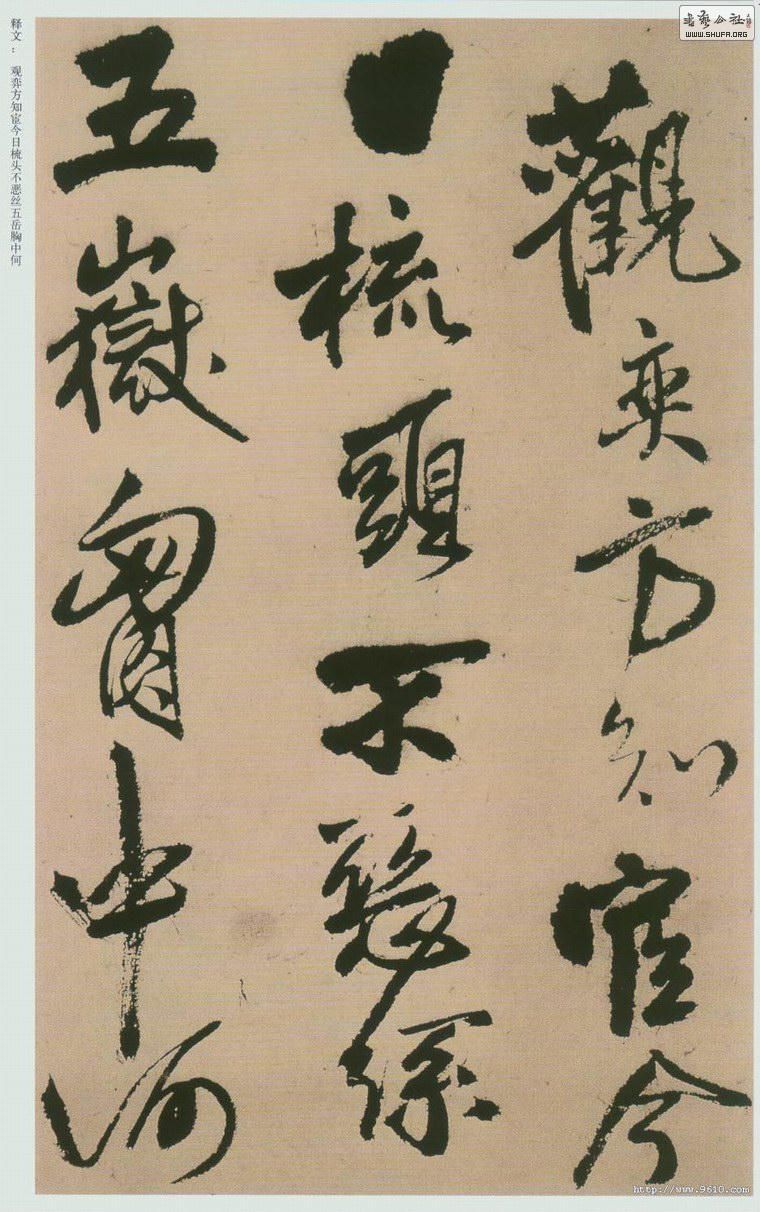 觀奕方知宦今
日梳頭不
五嶽胷中何
释文： 观弈方知宦今日梳头不恶丝五岳胸中何
书艺公社
WWW.SHUFA.ORG
http://www.9610.com